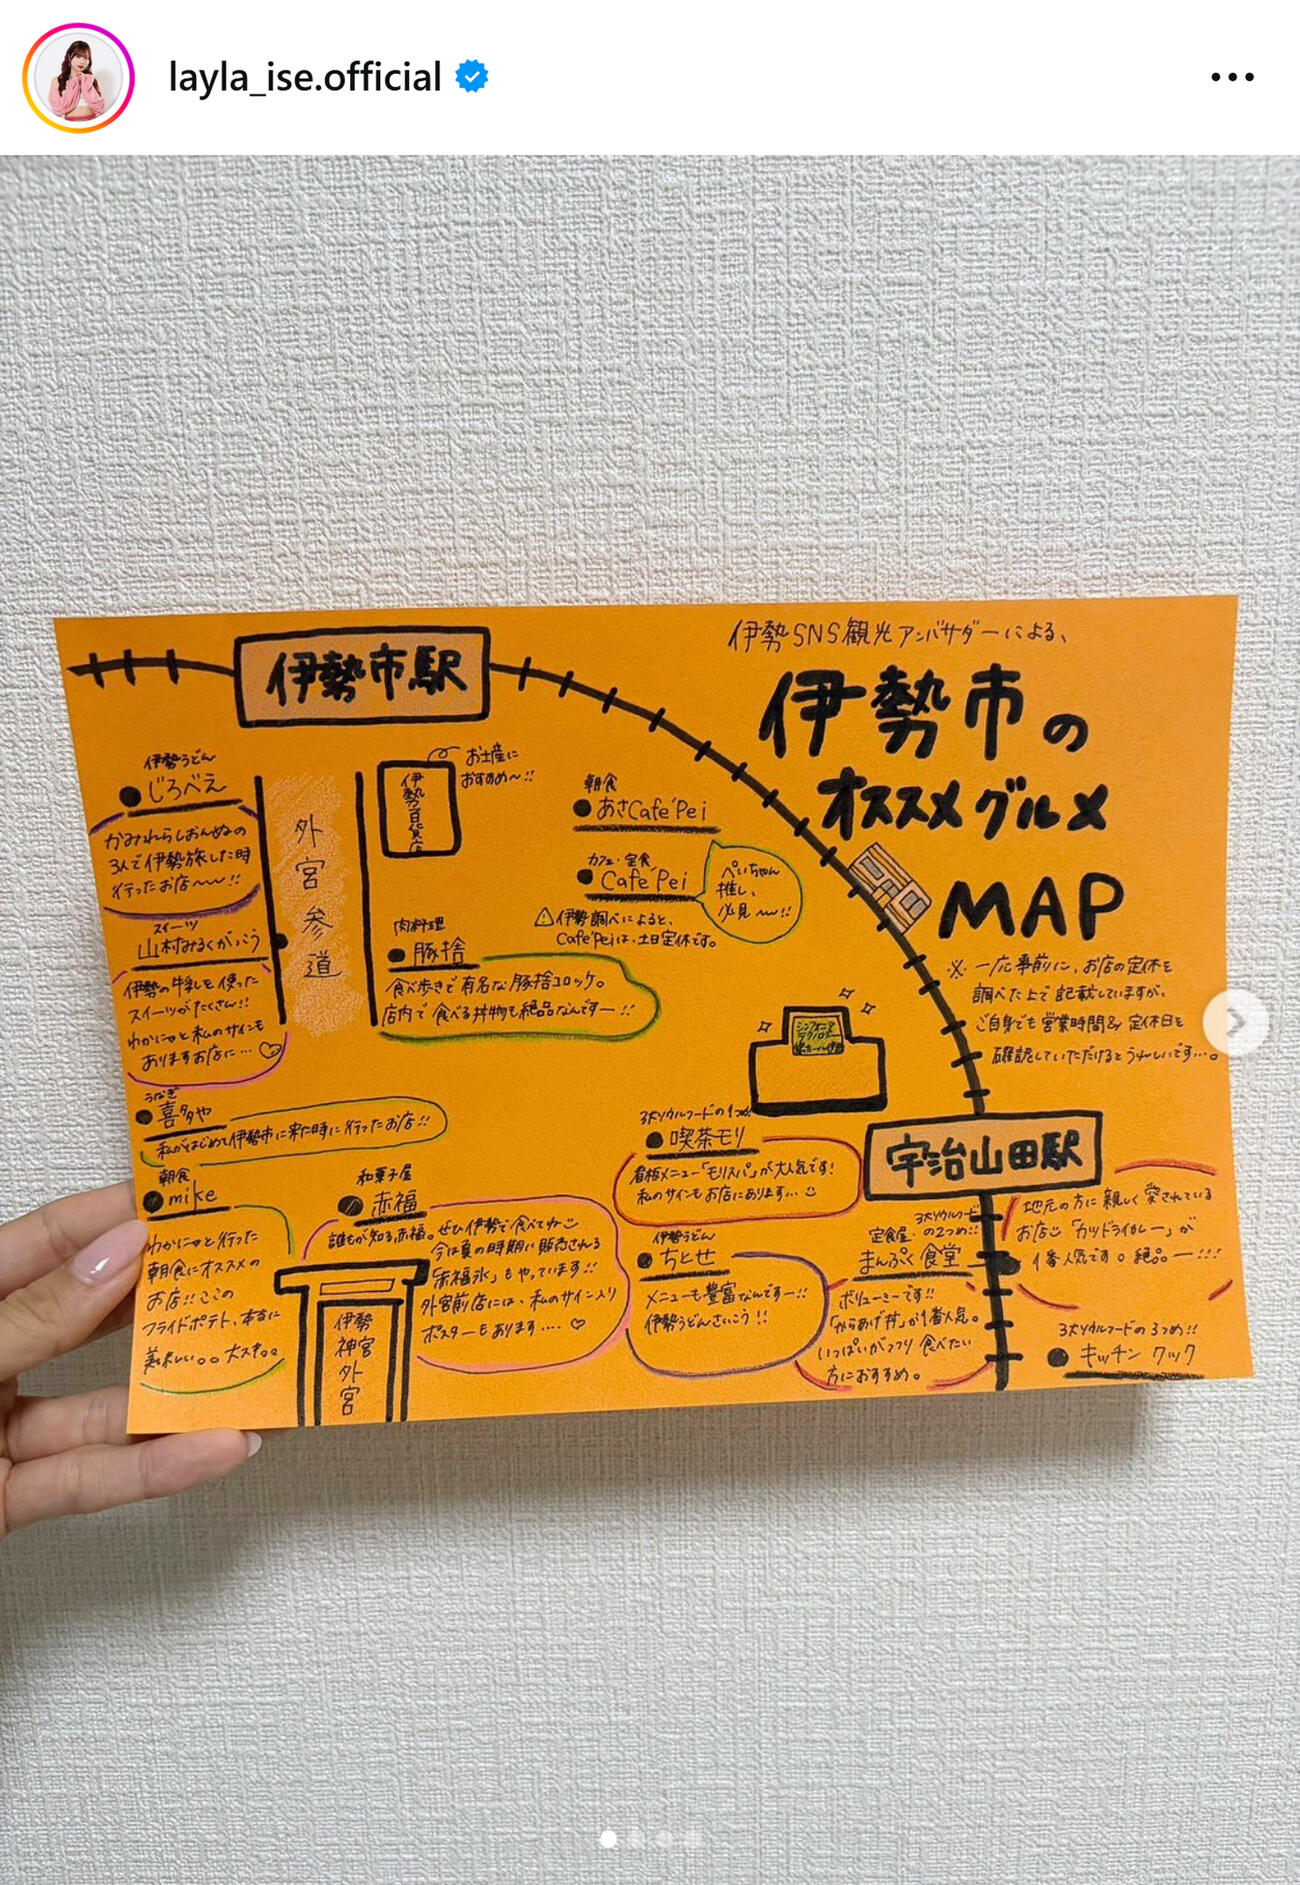 layla_ise.official
伊勢SNS観光アンバサダーによる、
伊勢市の
オススメグルメ
MAP
※一応事前に、お店の定休を
調べた上で記載していますが、
ご自身でも営業時間& 定休日を
確認していただけるとうれしいです…。
伊勢市駅
伊勢うどん
じろべえ
かみれらしおんぬの
3人で伊勢旅した時
行ったお店〜〜!!
スイーツ
山村みるくがっこう
伊勢の牛乳を使った
スイーツがたくさん!!
わかにゃと私のサインも
ありますお店に…♡
外宮参道
伊勢百貨店
お土産に
おすすめ〜!!
肉料理
豚捨
食べ歩きで有名な豚捨コロッケ。
店内で食べる丼物も絶品なんですー!!
朝食
あさCafe'Pei
カフェ・定食
Cafe'Pei
ぺいちゃん
推し、
必見〜!!
⚠伊勢調べによると、
Cafe'Peiは、土日定休です。
うなぎ
喜多や
私がはじめて伊勢市に来た時に行ったお店!!
朝食
mike
わかにゃと行った
朝食にオススメの
お店!!ここの
フライドポテト、本当に
美味しい。。大スキ。。
和菓子屋
赤福
誰もが知る赤福。ぜひ伊勢で食べてね
今は夏の時期に販売される
「赤福氷」もやっています!!
外宮前店には、私のサイン入り
ポスターもあります....♡
伊勢神宮外宮
シンフォニア
テクノロジー
響ホール伊勢
3大ソウルフードの1つめ!!
喫茶モリ
看板メニュー「モリスパ」が大人気です!
私のサインもお店にあります…
伊勢うどん
ちとせ
メニューも豊富なんですー!!
伊勢うどんさいこう!!
宇治山田駅
3大ソウルフード
定食屋・の2つめ!!
まんぷく食堂
ボリューミーです!!
「からあげ丼」が1番人気。
いっぱいがっつり食べたい
方におすすめ。
地元の方に親しく愛されている
お店 「カツドライカレー」が
1番人気です。絶品ー!!!
3大ソウルフードの3つめ!!
キッチン クック